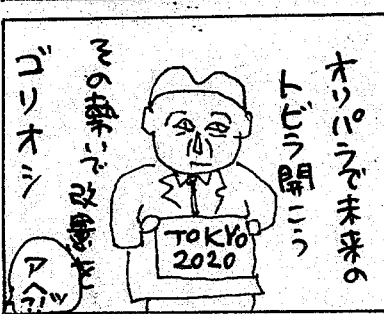 オリパラで未来の
トビラ開こう
その勢いで改憲を
ゴリオシ
TOKYO
2020